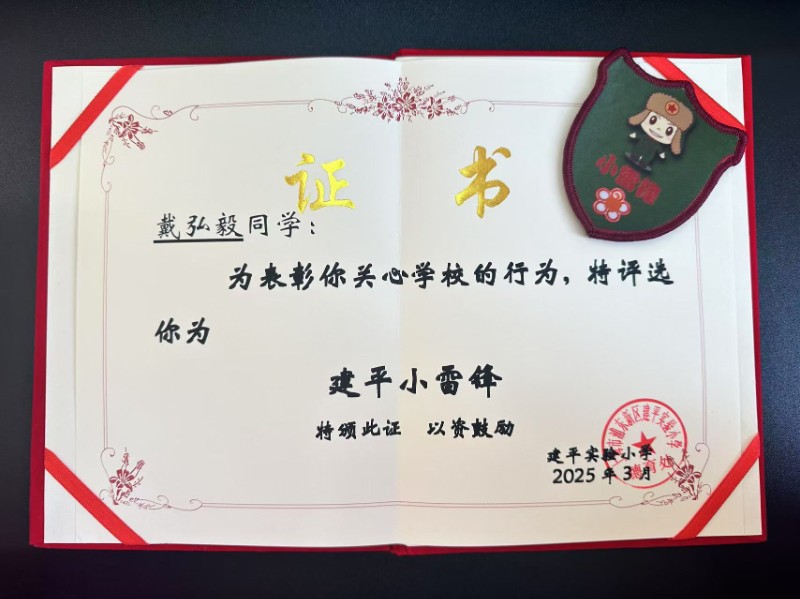 证书
小雷锋
戴弘毅同学：
为表彰你关心学校的行为，特评选
你为
建平小雷锋
特颁此证 以资鼓励
建平实验小学
2025年3月
市浦东新区建平实验小学
德育处